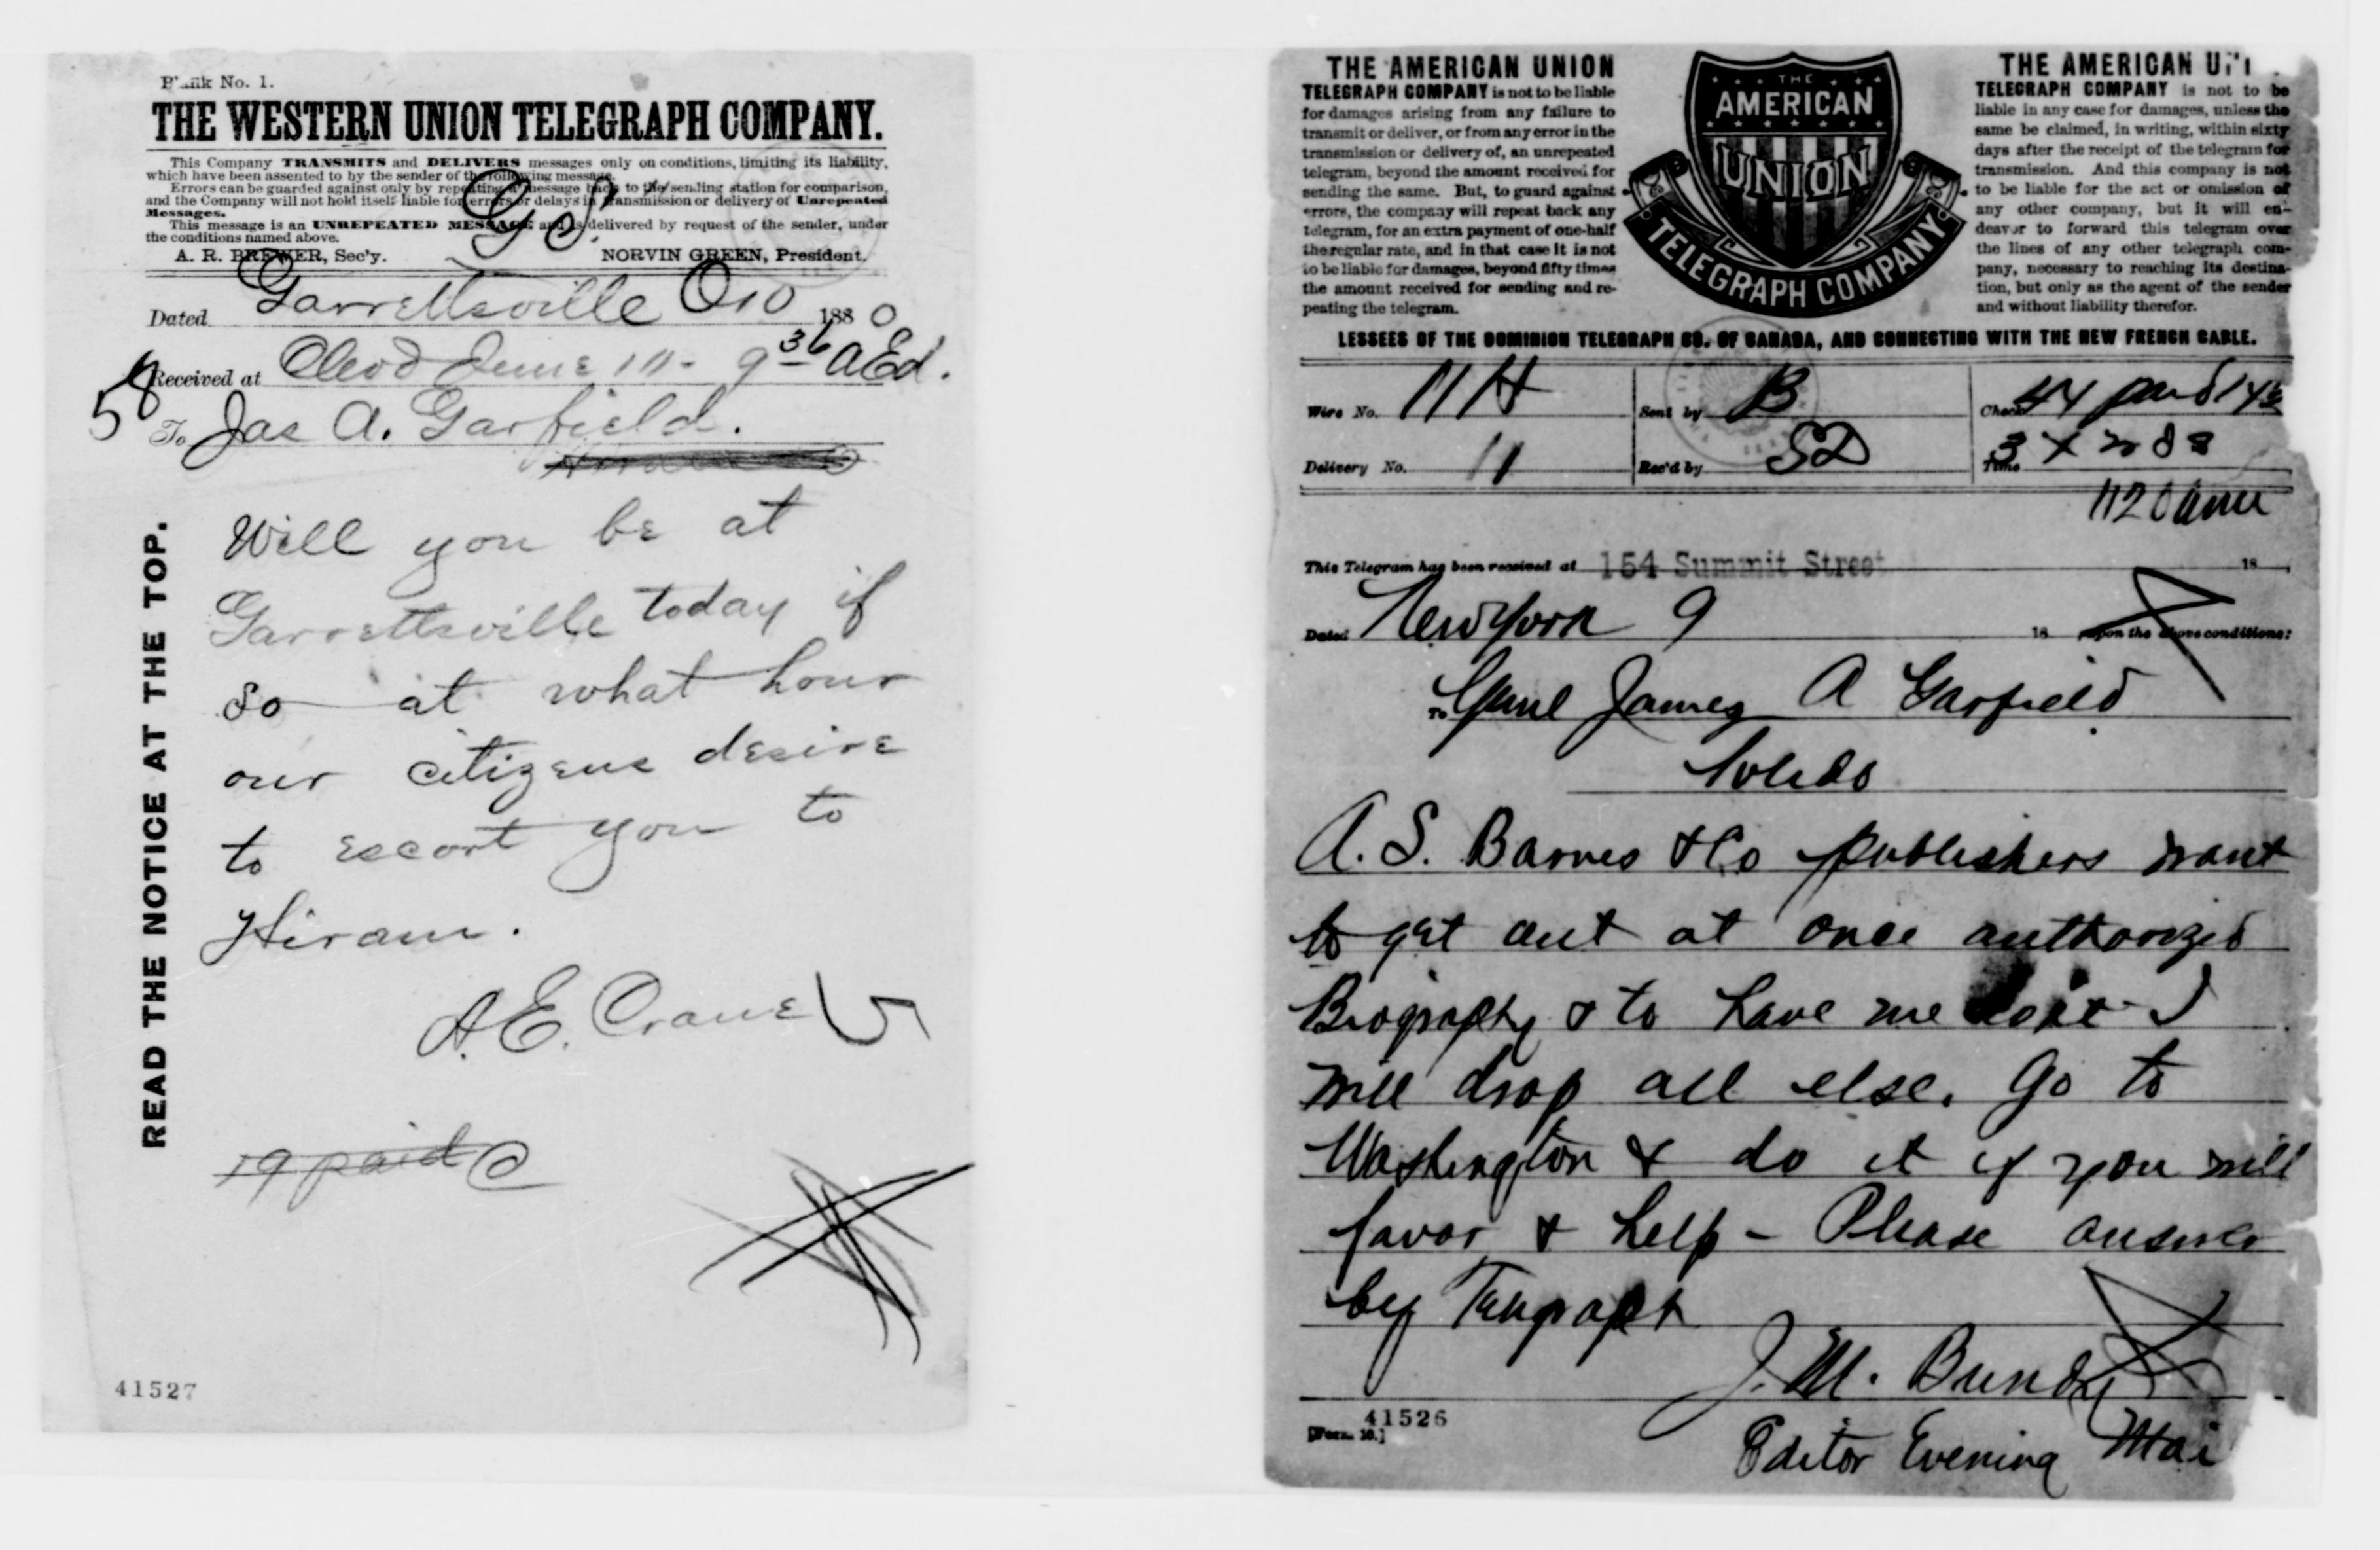 Blank No. 1.
THE WESTERN UNION TELEGRAPH COMPANY.
This Company TRANSMITS and DELIVERS messages only on conditions, limiting its liability,
which have been assented to by the sender of the following message.
Errors can be guarded against only by repeating a message back to the sending station for comparison,
and the Company will not hold itself liable for errors or delays in transmission or delivery of Unrepeated
Messages.
This message is an UNREPEATED MESSAGE and is delivered by request of the sender, under
the conditions named above.
A. R. BREWER, Sec'y. NORVIN GREEN, President.
Dated Garrettsville O 10 1880
Received at Clevd June 10 - 9 36 A Ed.
58
To Jas A. Garfield.
READ THE NOTICE AT THE TOP.
Will you be at
Garrettsville today if
so at what hour
our citizens desire
to escort you to
Hiram.
A. E. Crane
19 paid
41527
THE AMERICAN UNION
TELEGRAPH COMPANY is not to be liable
for damages arising from any failure to
transmit or deliver, or from any error in the
transmission or delivery of, an unrepeated
telegram, beyond the amount received for
sending the same. But, to guard against
errors, the company will repeat back any
telegram, for an extra payment of one-half
the regular rate, and in that case it is not
to be liable for damages, beyond fifty times
the amount received for sending and re-
peating the telegram.
THE
AMERICAN
UNION
TELEGRAPH COMPANY
THE AMERICAN UNI
TELEGRAPH COMPANY is not to be
liable in any case for damages, unless the
same be claimed, in writing, within sixty
days after the receipt of the telegram for
transmission. And this company is not
to be liable for the act or omission of
any other company, but it will en-
deavor to forward this telegram over
the lines of any other telegraph com-
pany, necessary to reaching its destina-
tion, but only as the agent of the sender
and without liability therefor.
LESSEES OF THE DOMINION TELEGRAPH CO. OF CANADA, AND CONNECTING WITH THE NEW FRENCH CABLE.
Wire No. 11 H Sent by B Check 44 paid
Delivery No. 11 Rec'd by SD Time
1120 am
This Telegram has been received at 154 Summit Street 18
Dated New York 9 18 upon the above conditions:
To Genl James A Garfield
Toledo
A. S. Barnes & Co publishers want
to get out at once authorized
Biography & to have me I
will drop all else. Go to
Washington & do it if you will
favor & help - Please answer
by Telegraph
J. M. Bundy
Editor Evening Mai
41526
[Form 10.]